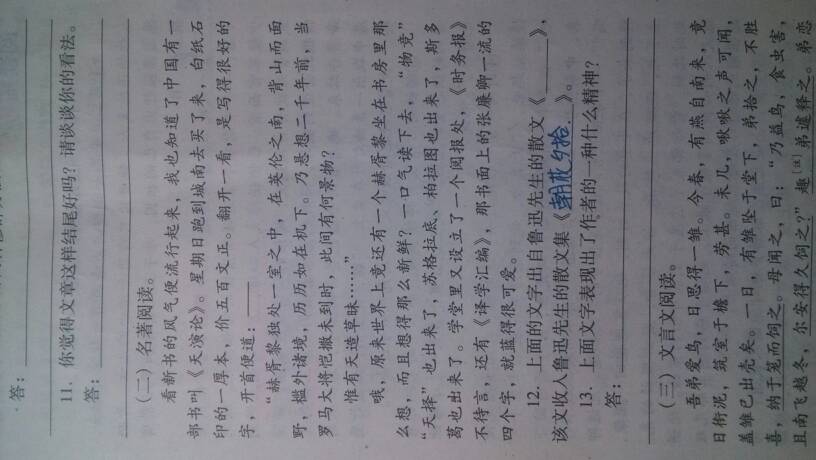 答：
11. 你觉得文章这样结尾好吗？请谈谈你的看法。
答：
（二）名著阅读。
看新书的风气便流行起来，我也知道了中国有一
部书叫《天演论》。星期日跑到城南去买了来，白纸石
印的一厚本，价五百文正。翻开一看，是写得很好的
字，开首便道：——
“赫胥黎独处一室之中，在英伦之南，背山而面
野，槛外诸境，历历如在机下。乃悬想二千年前，当
罗马大将恺撒未到时，此间有何景物？
惟有天造草昧……”
哦，原来世界上竟还有一个赫胥黎坐在书房里那
么想，而且想得那么新鲜？一口气读下去，“物竞”
“天择”也出来了，苏格拉底、柏拉图也出来了，斯多
葛也出来了。学堂里又设立了一个阅报处，《时务报》
不待言，还有《译学汇编》，那书面上的张廉卿一流的
四个字，就蓝得很可爱。
12. 上面的文字出自鲁迅先生的散文《______》，
该文收入鲁迅先生的散文集《朝花夕拾》。
13. 上面文字表现出了作者的一种什么精神？
答：
（三）文言文阅读。
吾弟爱鸟，日思得一雏。今春，有燕自南来，竟
日衔泥，筑室于檐下，劳甚。未几，啾啾之声可闻，
盖雏已出壳矣。一日，有雏坠于堂下，弟拾之，不胜
喜，纳于笼而饲之。母闻之，曰：“乃益鸟，食虫害，
且南飞越冬，尔安得久饲之？”趣［注］弟遽释之。弟恋